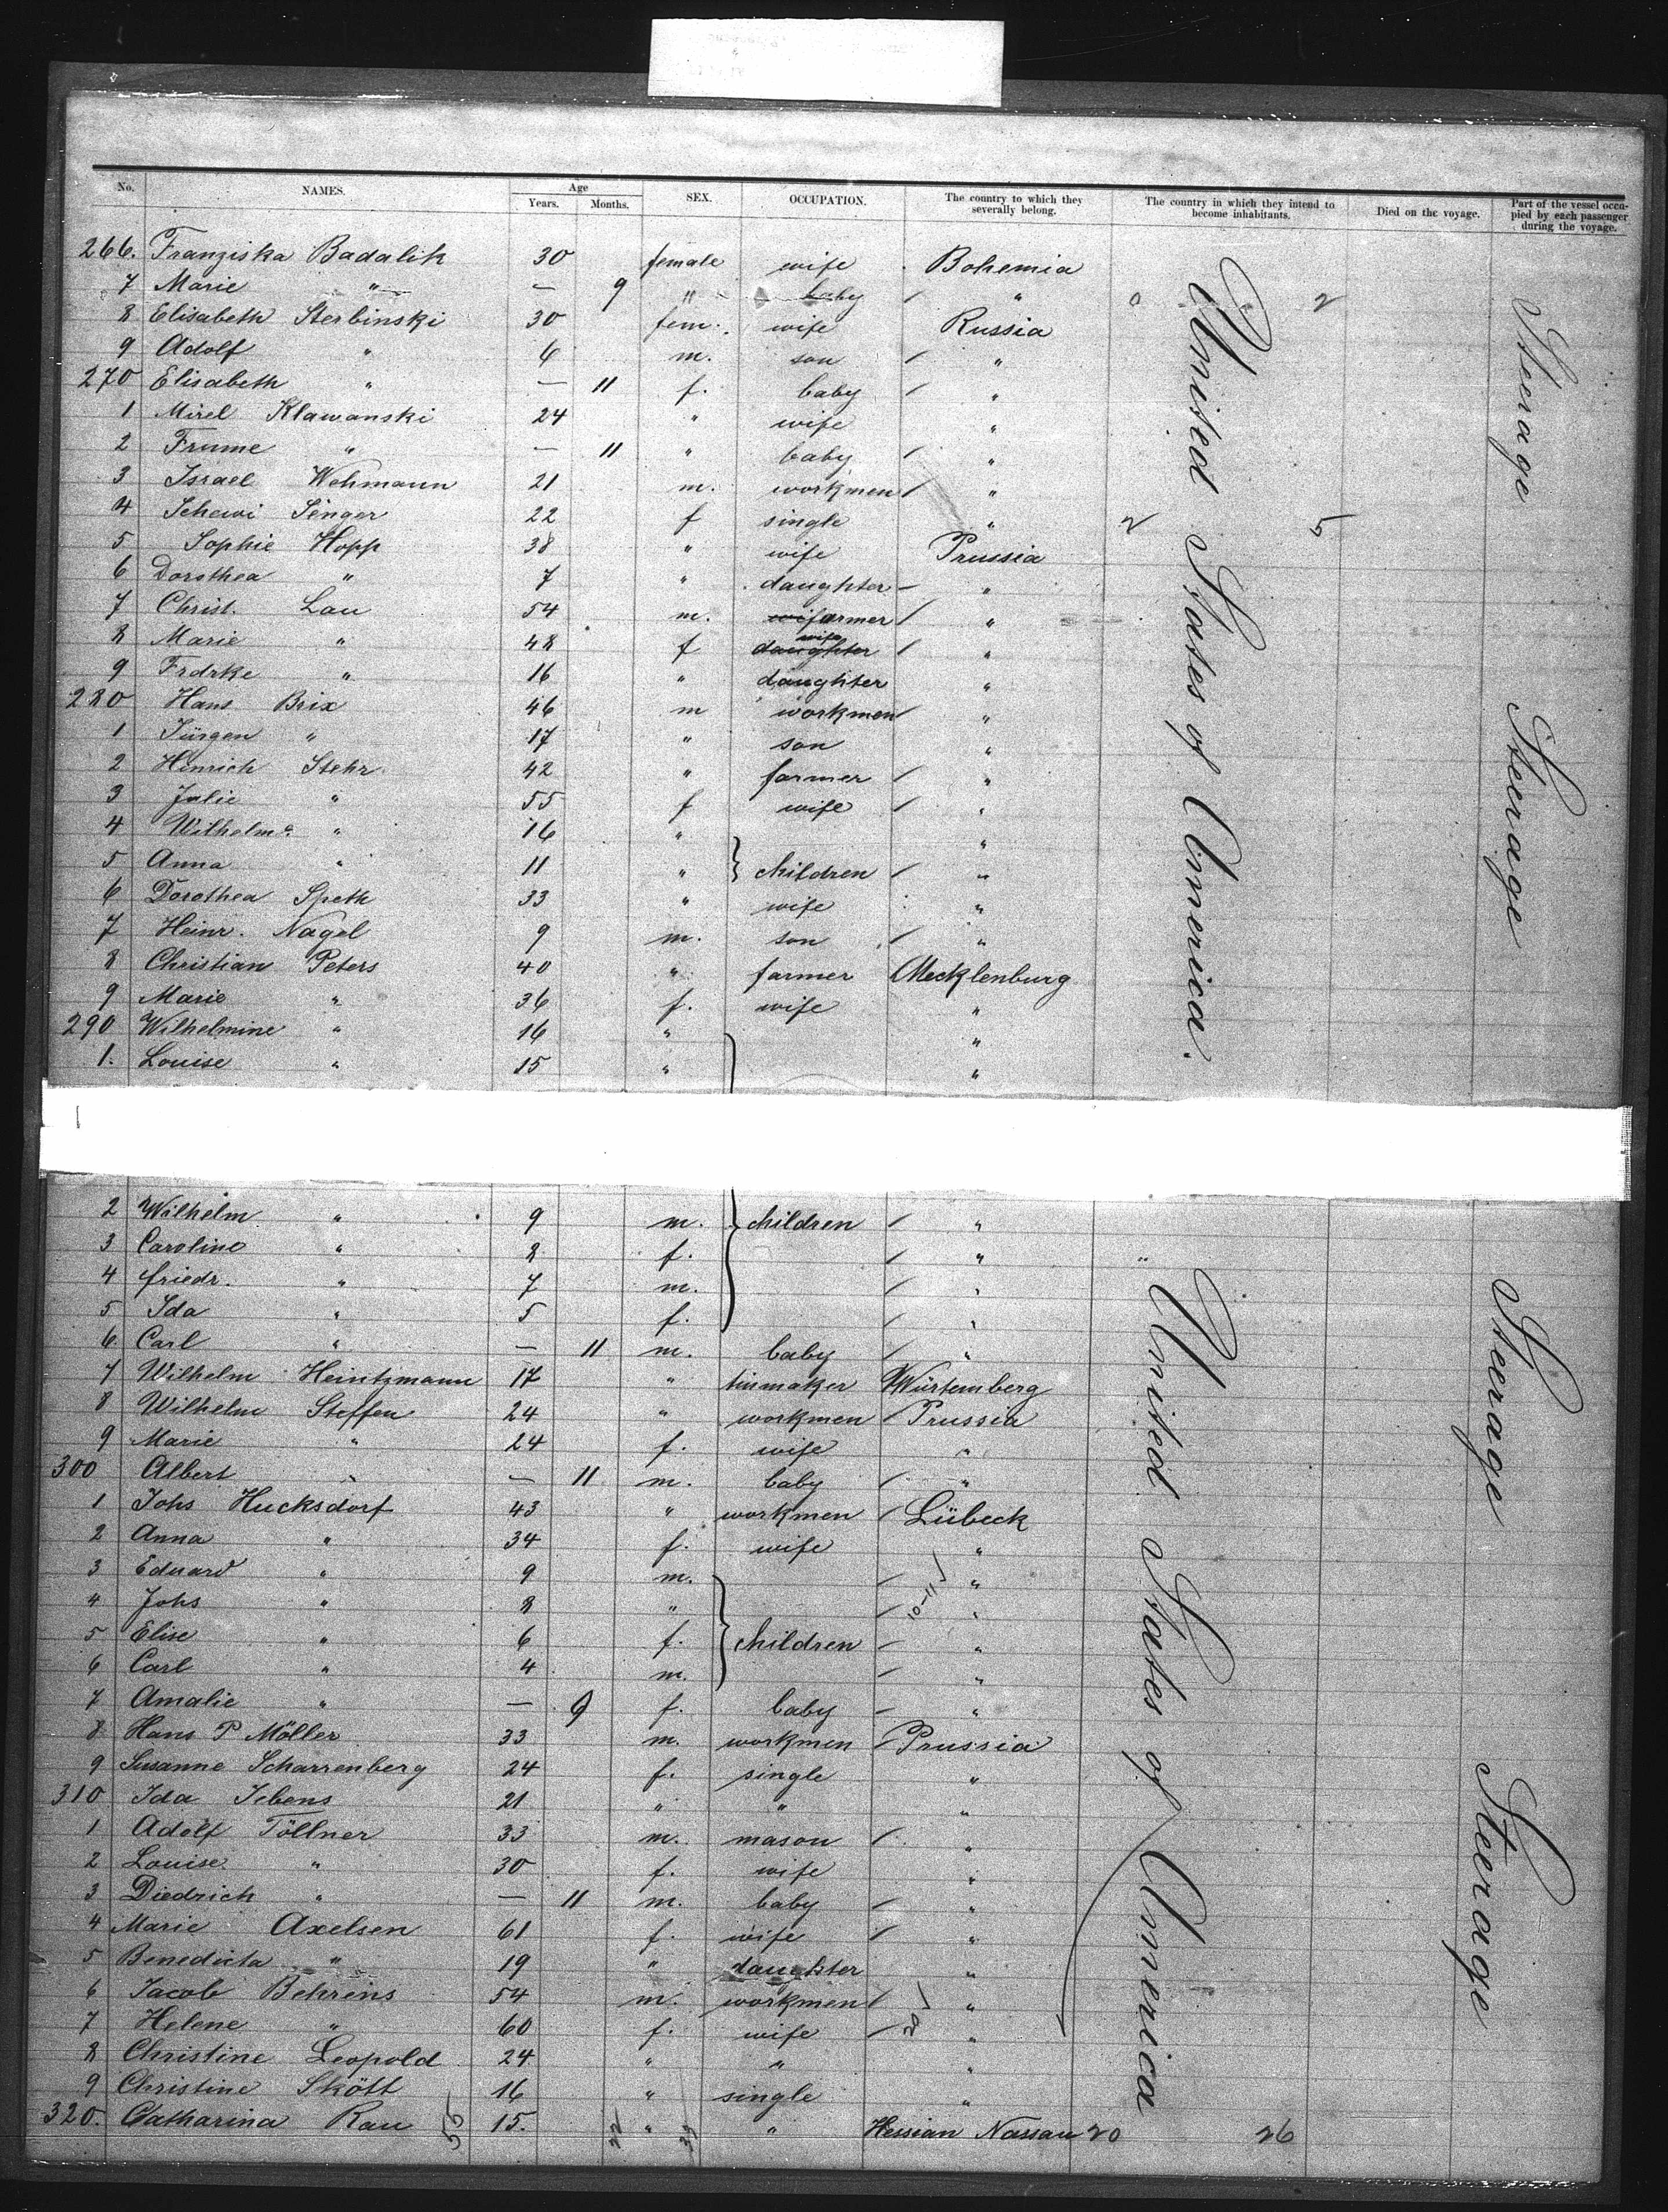 No. NAMES. Age Years. Months. SEX. OCCUPATION. The country to which they severally belong. The country in which they intend to become inhabitants. Died on the voyage. Part of the vessel occupied by each passenger during the voyage.
266. Franziska Badalik 30 female wife Bohemia
7 Marie " — 9 " baby "
8 Elisabeth Sterbinski 30 fem. wife Russia
9 Adolf " 6 m. son "
270 Elisabeth " — 11 f. baby "
1 Mirel Klawanski 24 " wife "
2 Frume " — 11 " baby "
3 Israel Wehmann 21 m. workmen "
4 Schewi Singer 22 f single " 2 5
5 Sophie Hopp 38 " wife Prussia
6 Dorothea " 7 " daughter "
7 Christ. Lau 54 m. farmer "
8 Marie " 48 f daughter wife "
9 Frdrke " 16 " daughter "
280 Hans Brix 46 m workmen "
1 Jürgen " 17 " son "
2 Hinrich Stehr 42 " farmer "
3 Julie " 55 f wife "
4 Wilhelme " 16 " "
5 Anna " 11 " children "
6 Dorothea Speth 33 " wife "
7 Heinr. Nagel 9 m. son "
8 Christian Peters 40 " farmer Mecklenburg
9 Marie " 36 f. wife "
290 Wilhelmine " 16 " "
1. Louise " 15 " "
United States of America.
Steerage
Steerage
2 Wilhelm " 9 m. children "
3 Caroline " 8 f. " "
4 friedr. " 7 m. "
5 Ida " 5 f. "
6. Carl " — 11 m. baby "
7 Wilhelm Heintzmann 17 " tinmaker Würtemberg
8 Wilhelm Steffen 24 " workmen Prussia
9 Marie " 24 f. wife "
300 Albert " — 11 m. baby "
1 Johs Hucksdorf 43 " workmen Lübeck
2 Anna " 34 f. wife "
3 Eduard " 9 m. "
4 Johs " 8 " 10-11 "
5 Elise " 6 f. children "
6 Carl " 4 m. "
7 Amalie " — 9 f. baby "
8 Hans P Möller 33 m. workmen Prussia
9 Susanne Scharrenberg 24 f. single "
310 Ida Jebens 21 " " "
1 Adolf Töllner 33 m. mason "
2 Louise " 30 f. wife "
3 Diedrich " — 11 m. baby "
4 Marie Axelsen 61 f. wife "
5 Benedicta " 19 " daughter "
6 Jacob Behrens 54 m. workmen "
7 Helene " 60 f. wife "
8 Christine Leopold 24 " " "
9 Christine Skött 16 " single "
320. Catharina Rau 55 15. " " Hessian Nassau 20 26
United States of America
Steerage
Steerage